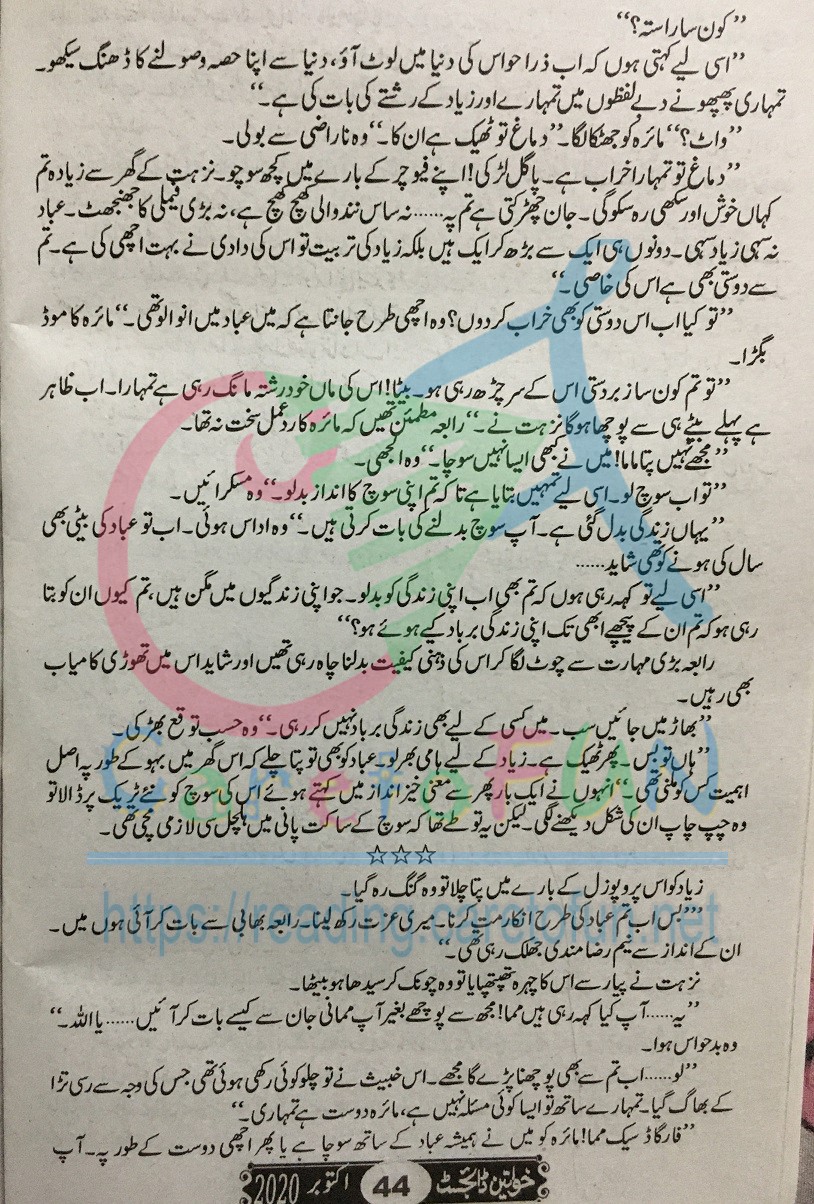 ”کون سا راستہ؟“
”اسی لیے کہتی ہوں کہ اب ذرا حواس کی دنیا میں لوٹ آؤ، دنیا سے اپنا حصہ وصولنے کا ڈھنگ سیکھو۔
تمہاری پھپھو نے دبے لفظوں میں تمہارے اور زیاد کے رشتے کی بات کی ہے۔“
”واٹ؟“ مائرہ کو جھٹکا لگا۔ ”دماغ تو ٹھیک ہے ان کا۔“ وہ ناراضی سے بولی۔
”دماغ تو تمہارا خراب ہے۔ پاگل لڑکی! اپنے فیوچر کے بارے میں کچھ سوچو۔ نزہت کے گھر سے زیادہ تم
کہاں خوش اور سکھی رہ سکو گی۔ جان چھڑکتی ہے تم پہ...... نہ ساس نند والی کھچ کھچ ہے، نہ بڑی فیملی کا جھنجھٹ۔ عباد
نہ سہی زیاد سہی۔ دونوں ہی ایک سے بڑھ کر ایک ہیں بلکہ زیاد کی تربیت تو اس کی دادی نے بہت اچھی کی ہے۔ تم
سے دوستی بھی ہے اس کی خاصی۔“
”تو کیا اب اس دوستی کو بھی خراب کر دوں؟ وہ اچھی طرح جانتا ہے کہ میں عباد میں انوالو تھی۔“ مائرہ کا موڈ
بگڑا۔
”تو تم کون سا زبردستی اس کے سر چڑھ رہی ہو۔ بیٹا! اس کی ماں خود رشتہ مانگ رہی ہے تمہارا۔ اب ظاہر
ہے پہلے بیٹے ہی سے پوچھا ہوگا نزہت نے۔“ رابعہ مطمئن تھیں کہ مائرہ کا ردعمل سخت نہ تھا۔
”مجھے نہیں پتا ماما! میں نے کبھی ایسا نہیں سوچا۔“ وہ الجھی۔
”تو اب سوچ لو۔ اسی لیے تمہیں بتایا ہے تاکہ تم اپنی سوچ کا انداز بدلو۔“ وہ مسکرائیں۔
”یہاں زندگی بدل گئی ہے۔ آپ سوچ بدلنے کی بات کرتی ہیں۔“ وہ اداس ہوئی۔ اب تو عباد کی بیٹی بھی
سال کی ہونے کو تھی شاید......
”اسی لیے تو کہہ رہی ہوں کہ تم بھی اب اپنی زندگی کو بدلو۔ جو اپنی زندگیوں میں مگن ہیں، تم کیوں ان کو بتا
رہی ہو کہ تم ان کے پیچھے ابھی تک اپنی زندگی برباد کیے ہوئے ہو؟“
رابعہ بڑی مہارت سے چوٹ لگا کر اس کی ذہنی کیفیت بدلنا چاہ رہی تھیں اور شاید اس میں تھوڑی کامیاب
بھی رہیں۔
”بھاڑ میں جائیں سب۔ میں کسی کے لیے بھی زندگی برباد نہیں کر رہی۔“ وہ حسب توقع بھڑکی۔
”ہاں تو بس۔ پھر ٹھیک ہے۔ زیاد کے لیے ہامی بھر لو۔ عباد کو بھی تو پتا چلے کہ اس گھر میں بہو کے طور پہ اصل
اہمیت کس کو ملنی تھی۔“ انہوں نے ایک بار پھر سے معنی خیز انداز میں کہتے ہوئے اس کی سوچ کو نئے ٹریک پر ڈالا تو
وہ چپ چاپ ان کی شکل دیکھنے لگی۔ لیکن یہ تو طے تھا کہ سوچ کے ساکت پانی میں ہلچل سی لازمی مچی تھی۔
☆☆☆
زیاد کو اس پروپوزل کے بارے میں پتا چلا تو وہ گنگ رہ گیا۔
”بس اب تم عباد کی طرح انکار مت کرنا۔ میری عزت رکھ لینا۔ رابعہ بھابی سے بات کر آئی ہوں میں۔
ان کے انداز سے نیم رضا مندی جھلک رہی تھی۔“
نزہت نے پیار سے اس کا چہرہ تھپتھپایا تو وہ چونک کر سیدھا ہو بیٹھا۔
”یہ...... آپ کیا کہہ رہی ہیں مما! مجھ سے پوچھے بغیر آپ ممانی جان سے کیسے بات کر آئیں...... یا اللہ۔“
وہ بدحواس ہوا۔
”لو...... اب تم سے بھی پوچھنا پڑے گا مجھے۔ اس خبیث نے تو چلو کوئی رکھی ہوئی تھی جس کی وجہ سے رسی تڑا
کے بھاگ گیا۔ تمہارے ساتھ تو ایسا کوئی مسئلہ نہیں ہے، مائرہ دوست ہے تمہاری۔“
”فار گاڈ سیک مما! مائرہ کو میں نے ہمیشہ عباد کے ساتھ سوچا ہے یا پھر اچھی دوست کے طور پہ۔ آپ
خواتین ڈائجسٹ 44 اکتوبر 2020
CaretoFun
https://reading.caretofun.net